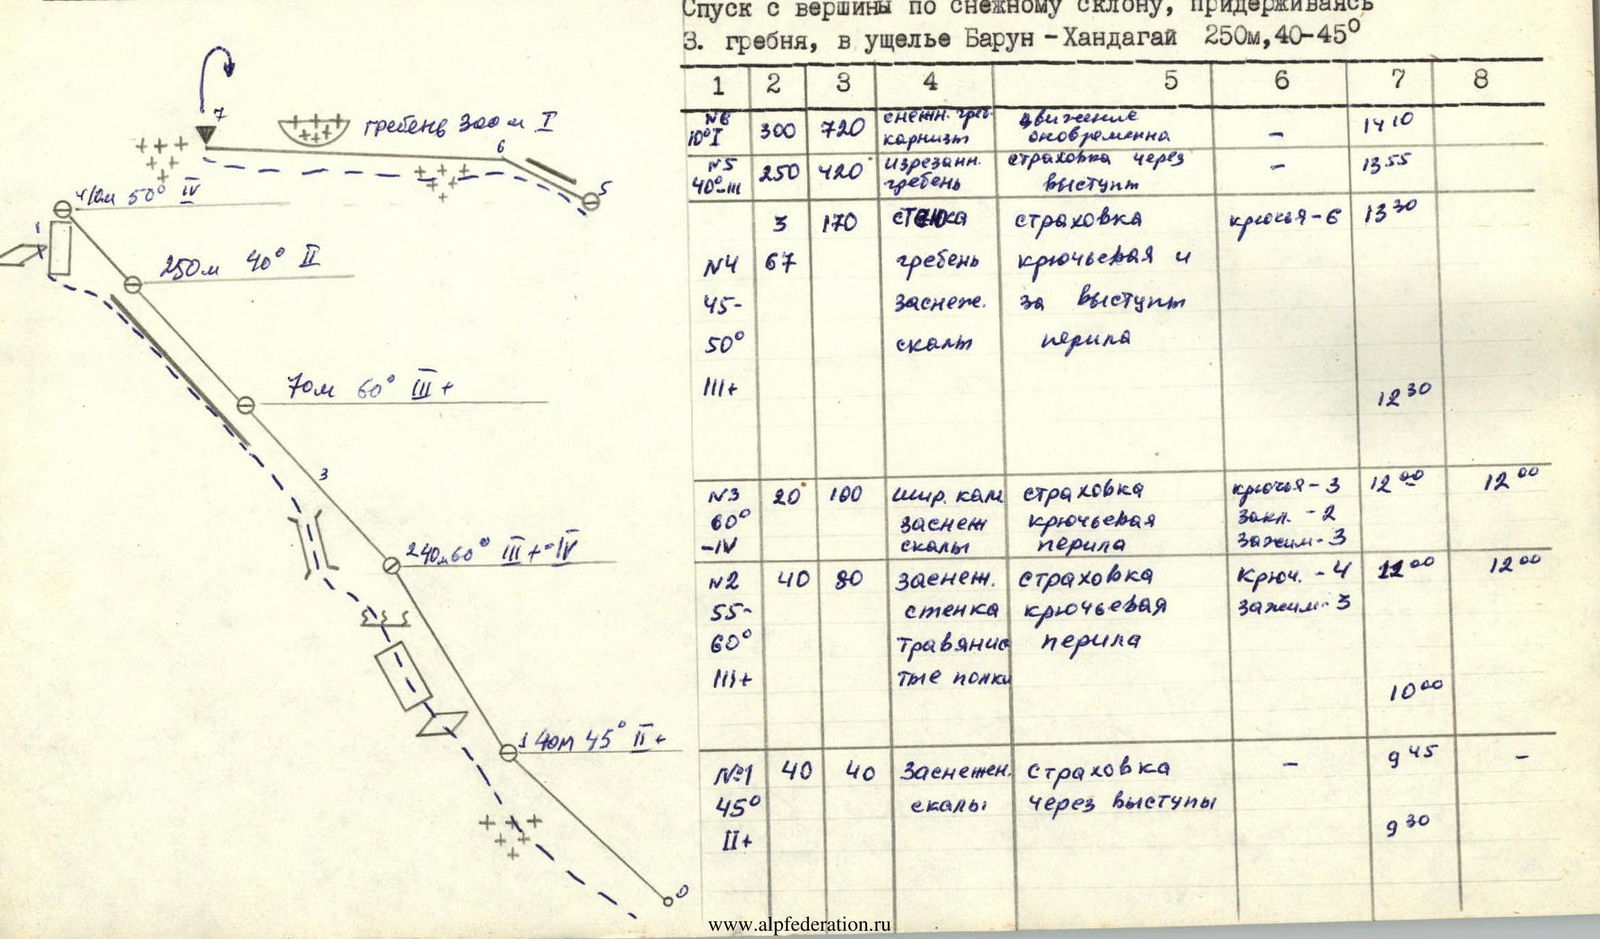 Спуск с вершины по снежному склону, придерживаясь
З. гребня, в ущелье Барун-Хандагай 250м,40-45⁰
7
гребень 300 м I
6
5
410м 50° IV
250м 40° II
70м 60° III+
3
240м60° III+-IV
1 40м 45° II+
0
1 2 3 4 5 6 7 8
N6 300 720 снежн. греб движение - 14 10
10° I карнизы оновременна
N5 250 420 изрезанн. страховка через - 13 55
40°-III гребень выступы
3 170 стенка страховка крючья-6 13 30
N4 67 гребень крючьевая и
45- заснеж. за выступы
50° скалы перила
III+ 12 30
N3 20 100 шир. кам страховка крючья-3 12 00 12 00
60° заснеж крючьевая закл. -2
-IV скалы перила зажим-3
N2 40 80 заснеж. страховка Крюч. -4 12 00
55- стенка крючьевая зажим-3
60° травянис перила
III+ тые полки 10 00
№1 40 40 Заснежен. страховка - 9 45 -
45° скалы через выступы
II+ 9 30
www.alpfederation.ru